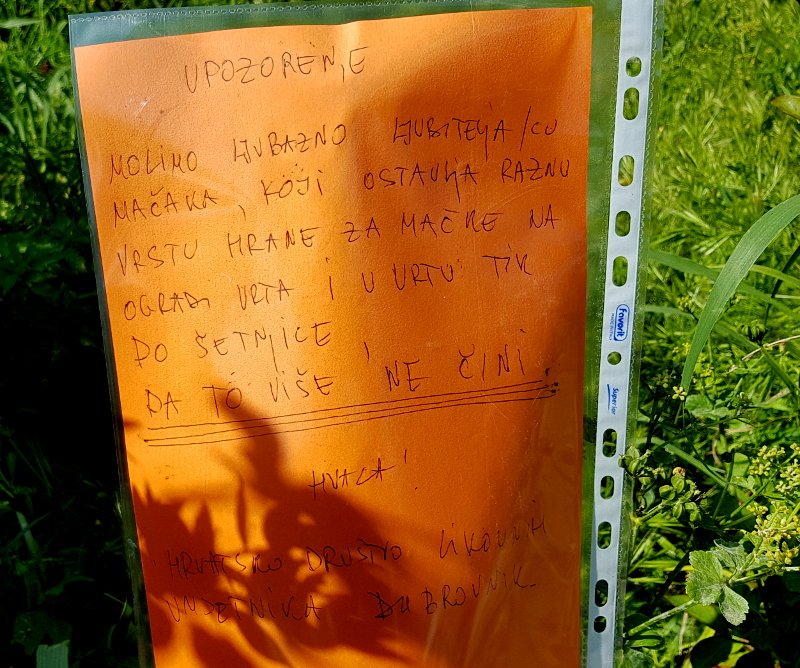 UPOZORENJE
MOLIMO LJUBAZNO LJUBITELJA/CU
MAČAKA, KOJI OSTAVLJA RAZNU
VRSTU HRANE ZA MAČKE NA
OGRADI VRTA I U VRTU TIK
DO ŠETNJICE,
DA TO VIŠE NE ČINI.
HVALA!
HRVATSKO DRUŠTVO LIKOVNIH
UMJETNIKA DUBROVNIK
favorit
Superior